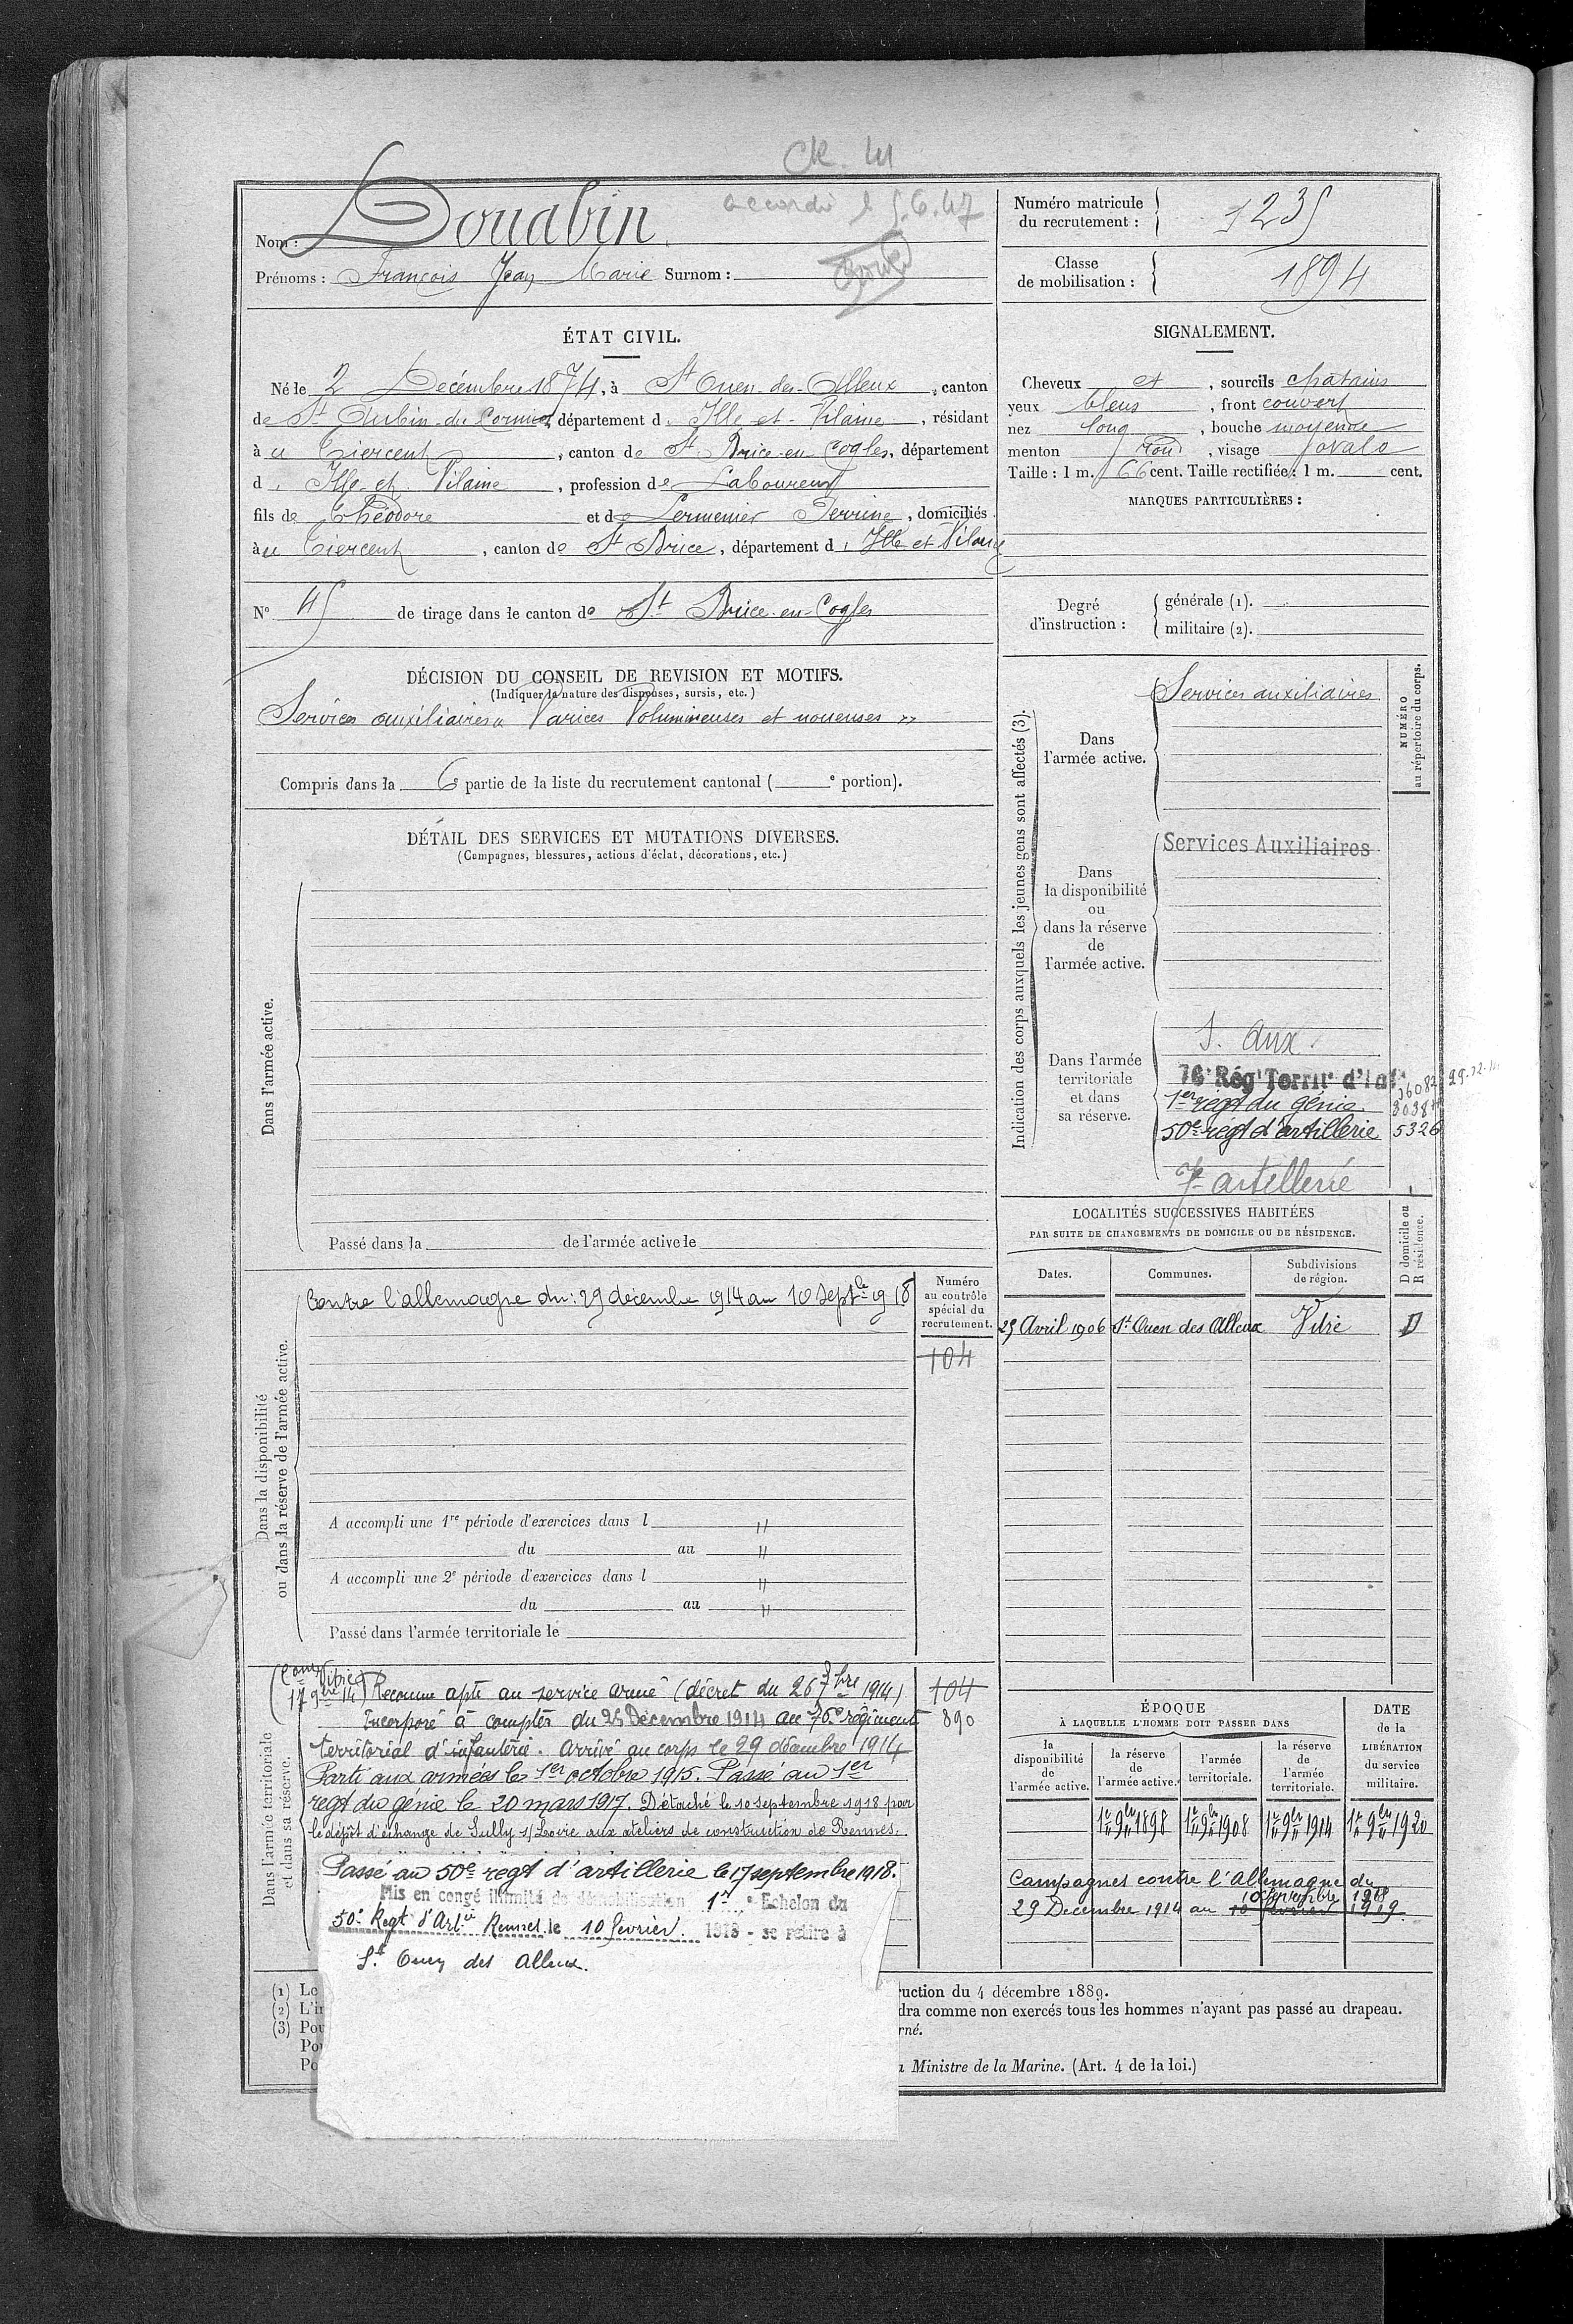 CR. 41
accordé le 5.6.47
Nom : Douabin
Prénoms : François Jean Marie Surnom :
Numéro matricule du recrutement : 1235
Classe de mobilisation : 1894
ÉTAT CIVIL.
Né le 2 Décembre 1874, à St Ouen-des-Alleux, canton
de St Aubin-du-Cormier, département d. Ille-et-Vilaine, résidant
à u Tiercent, canton de St Brice-en-Cogles, département
d. Ille-et-Vilaine, profession de Laboureur
fils de Théodore et de Lermenier Perrine, domiciliés
à u Tiercent, canton de St Brice, département d. Ille et Vilaine
N° 45 de tirage dans le canton de St Brice-en-Cogles
SIGNALEMENT.
Cheveux et, sourcils chatains
yeux bleus, front couvert
nez long, bouche moyenne
menton rond, visage ovale
Taille : 1 m. 66 cent. Taille rectifiée : 1 m. cent.
MARQUES PARTICULIÈRES :
Degré d'instruction :
générale (1).
militaire (2).
DÉCISION DU CONSEIL DE REVISION ET MOTIFS.
(Indiquer la nature des dispenses, sursis, etc.)
Services auxiliaires « Varices Volumineuses et noueuses »
Compris dans la 6e partie de la liste du recrutement cantonal ( e portion).
DÉTAIL DES SERVICES ET MUTATIONS DIVERSES.
(Campagnes, blessures, actions d'éclat, décorations, etc.)
Dans l'armée active.
Passé dans la de l'armée active le
Indication des corps auxquels les jeunes gens sont affectés (3).
NUMÉRO
au répertoire du corps.
Dans
l'armée active.
Services auxiliaires
Dans
la disponibilité
ou
dans la réserve
de
l'armée active.
Services Auxiliaires
Dans l'armée
territoriale
et dans
sa réserve.
S. aux.
76e Régt Territ. d'Inf.
29.12.14
1er régt du génie
50e régt d'artillerie 5326
7e artillerie
LOCALITÉS SUCCESSIVES HABITÉES
PAR SUITE DE CHANGEMENTS DE DOMICILE OU DE RÉSIDENCE.
D domicile ou
R résidence.
Dates.
Communes.
Subdivisions
de région.
29 Avril 1906 St Ouen des Alleux Vitré D
Dans la disponibilité
ou dans la réserve de l'armée active.
Contre l'allemagne du: 29 décembre 1914 au 10 Septbre 1918
Numéro
au contrôle
spécial du
recrutement.
104
A accompli une 1re période d'exercices dans l "
du au "
A accompli une 2e période d'exercices dans l "
du au "
Passé dans l'armée territoriale le
Dans l'armée territoriale
et dans sa réserve.
Vitré
17 9bre 14) Reconnu apte au service armé (décret du 26 7bre 1914) 104
Incorporé à compter du 25 Décembre 1914 au 76e régiment 890
territorial d'infanterie. arrivé au corps le 29 décembre 1914
Parti aux armées le 1er octobre 1915. Passé au 1er
régt du génie le 20 mars 1917. Détaché le 10 septembre 1918 par
le dépôt d'échange de Sully s/Loire aux ateliers de construction de Rennes.
Passé au 50e régt d'artillerie le 17 septembre 1918.
Mis en congé illimité de démobilisation 1er Echelon du
50e Regt d'Artie Rennes le 10 fevrier 1918 - se retire à
St Ouen des Alleux.
ÉPOQUE
À LAQUELLE L'HOMME DOIT PASSER DANS
DATE
de la
LIBÉRATION
du service
militaire.
la
disponibilité
de
l'armée active.
la réserve
de
l'armée active.
l'armée
territoriale.
la réserve
de
l'armée
territoriale.
1er 9bre 1898 1er 9bre 1908 1er 9bre 1914 1er 9bre 1920
Campagnes contre l'Allemagne du
10 septembre 1918
29 Decembre 1914 au 10 fevrier 1919.
(1) Le
(2) L'in
(3) Pou
Pou
Po
ruction du 4 décembre 1889.
dra comme non exercés tous les hommes n'ayant pas passé au drapeau.
rné.
Ministre de la Marine. (Art. 4 de la loi.)